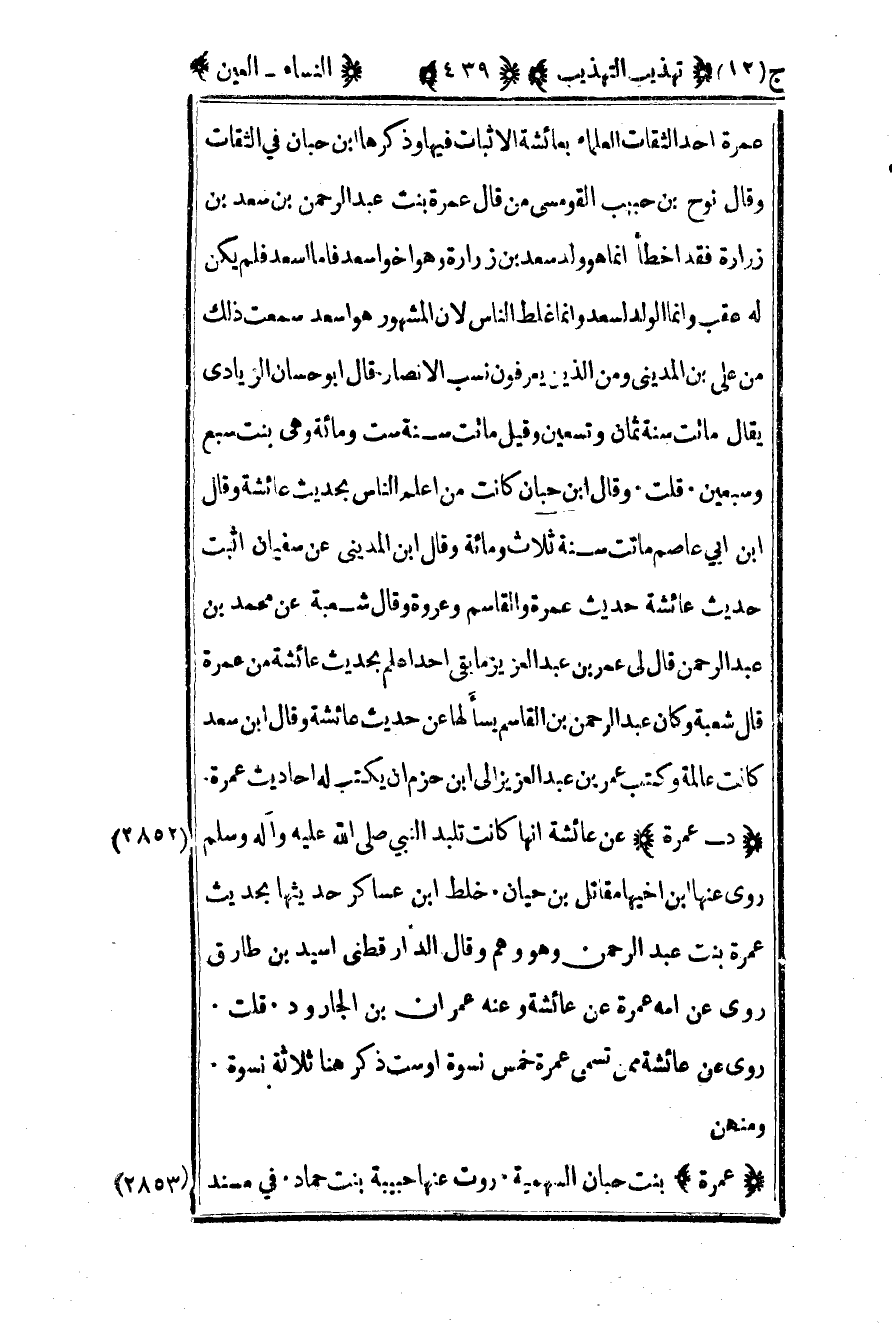 ج (١٢) ﴿ تهذيب التهذيب ﴾ ﴿ ٤٣٩ ﴾ ﴿ النساء - العين ﴾
عمرة احد الثقات العلماء بعائشة الاثبات فيها وذكرها ابن حبان في الثقات
وقال نوح بن حبيب القومسى من قال عمرة بنت عبد الرحمن بن سعد بن
زرارة فقد اخطأ انما هو ولد سعد بن زرارة وهو اخو اسعد فاما اسعد فلم يكن
له عقب وانما الولد لسعد وانما غلط الناس لان المشهور هو اسعد سمعت ذلك
من على بن المدينى ومن الذين يعرفون نسب الانصار ٠ قال ابو حسان الزيادى
يقال ماتت سنة ثمان وتسعين وقيل ماتت سنة ست ومائة وهى بنت سبع
وسبعين ٠ قلت ٠ وقال ابن حبان كانت من اعلم الناس بحديث عائشة وقال
ابن ابي عاصم ماتت سنة ثلاث ومائة وقال ابن المدينى عن سفيان اثبت
حديث عائشة حديث عمرة والقاسم وعروة وقال شعبة عن محمد بن
عبد الرحمن قال لى عمر بن عبد العزيز ما بقى احد اعلم بحديث عائشة من عمرة
قال شعبة وكان عبد الرحمن بن القاسم يسألها عن حديث عائشة وقال ابن سعد
كانت عالمة وكتب عمر بن عبد العزيز الى ابن حزم ان يكتب له احاديث عمرة ٠
﴿ د - عمرة ﴾ عن عائشة انها كانت تلبد النبي صلى الله عليه وآله وسلم (٢٨٥٢)
روى عنها ابن اخيها مقاتل بن حيان ٠ خلط ابن عساكر حديثها بحديث
عمرة بنت عبد الرحمن وهو وهم وقال الدار قطنى اسيد بن طارق
روى عن امه عمرة عن عائشة وعنه عمران بن الجارود ٠ قلت ٠
روى عن عائشة ممن تسمى عمرة خمس نسوة او ست ذكر هنا ثلاثة نسوة ٠
ومنهن
﴿ عمرة ﴾ بنت حبان السهمية ٠ روت عنها حبيبة بنت حماد ٠ في مسند (٢٨٥٣)